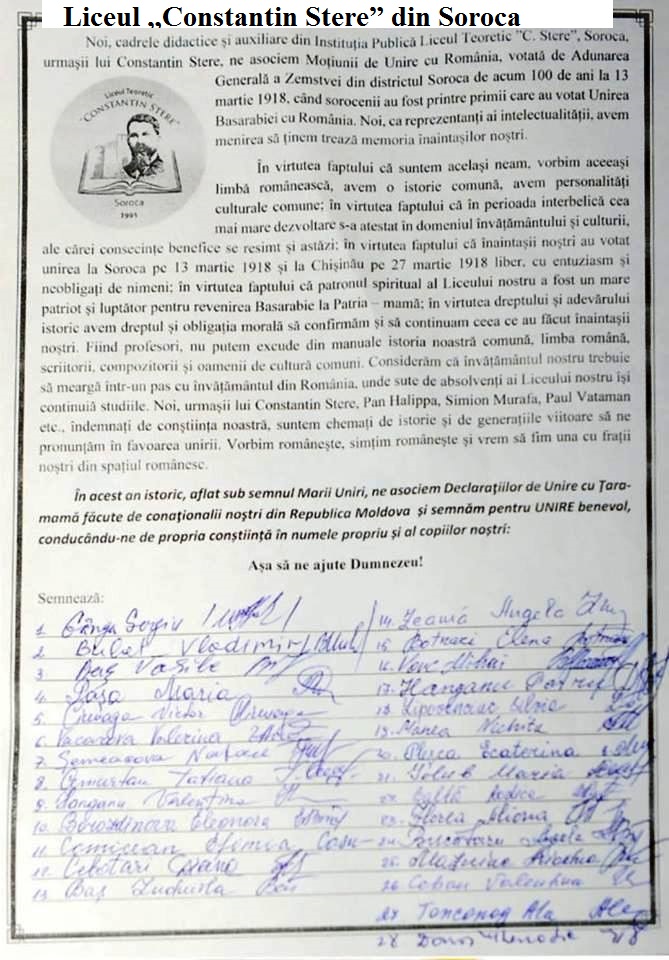 Liceul „Constantin Stere” din Soroca
Noi, cadrele didactice și auxiliare din Instituția Publică Liceul Teoretic ”C. Stere”, Soroca,
urmașii lui Constantin Stere, ne asociem Moțiunii de Unire cu România, votată de Adunarea
Generală a Zemstvei din districtul Soroca de acum 100 de ani la 13
martie 1918, când sorocenii au fost printre primii care au votat Unirea
Basarabiei cu România. Noi, ca reprezentanți ai intelectualității, avem
menirea să ținem trează memoria înaintașilor noștri.
Liceul Teoretic
"CONSTANTIN STERE"
Soroca
1991
În virtutea faptului că suntem același neam, vorbim aceeași
limbă românească, avem o istorie comună, avem personalități
culturale comune; în virtutea faptului că în perioada interbelică cea
mai mare dezvoltare s-a atestat în domeniul învățământului și culturii,
ale cărei consecințe benefice se resimt și astăzi; în virtutea faptului că înaintașii noștri au votat
unirea la Soroca pe 13 martie 1918 și la Chișinău pe 27 martie 1918 liber, cu entuziasm și
neobligați de nimeni; în virtutea faptului că patronul spiritual al Liceului nostru a fost un mare
patriot și luptător pentru revenirea Basarabie la Patria – mamă; în virtutea dreptului și adevărului
istoric avem dreptul și obligația morală să confirmăm și să continuam ceea ce au făcut înaintașii
noștri. Fiind profesori, nu putem excude din manuale istoria noastră comună, limba română,
scriitorii, compozitorii și oamenii de cultură comuni. Considerăm că învățământul nostru trebuie
să meargă într-un pas cu învățământul din România, unde sute de absolvenți ai Liceului nostru își
continuiă studiile. Noi, urmașii lui Constantin Stere, Pan Halippa, Simion Murafa, Paul Vataman
etc., îndemnați de conștiința noastră, suntem chemați de istorie și de generațiile viitoare să ne
pronunțăm în favoarea unirii. Vorbim românește, simțim românește și vrem să fim una cu frații
noștri din spațiul românesc.
În acest an istoric, aflat sub semnul Marii Uniri, ne asociem Declarațiilor de Unire cu Țara-
mamă făcute de conaționalii noștri din Republica Moldova și semnăm pentru UNIRE benevol,
conducându-ne de propria conștiință în numele propriu și al copiilor noștri:
Așa să ne ajute Dumnezeu!
Semnează:
1. Sergiu
2. Bulat Vladimir
3. Vasile
4. Maria
5. Victor
6. Valerica
7. Natalia
8. Tatiana
9. Hanganu Valentina
10. Eleonora
11. Efimia
12. Cebotari Diana
13. Baș Ludmila
14. Angela
15. Botnari Elena
16. Mihai
17. Hanganu
18. Silvia
19. Manea Nichita
20. Ecaterina
21. Maria
22. Rodica
23. Florea
24.
25.
26. Coban Valentina
27 Tonconog Ala
28